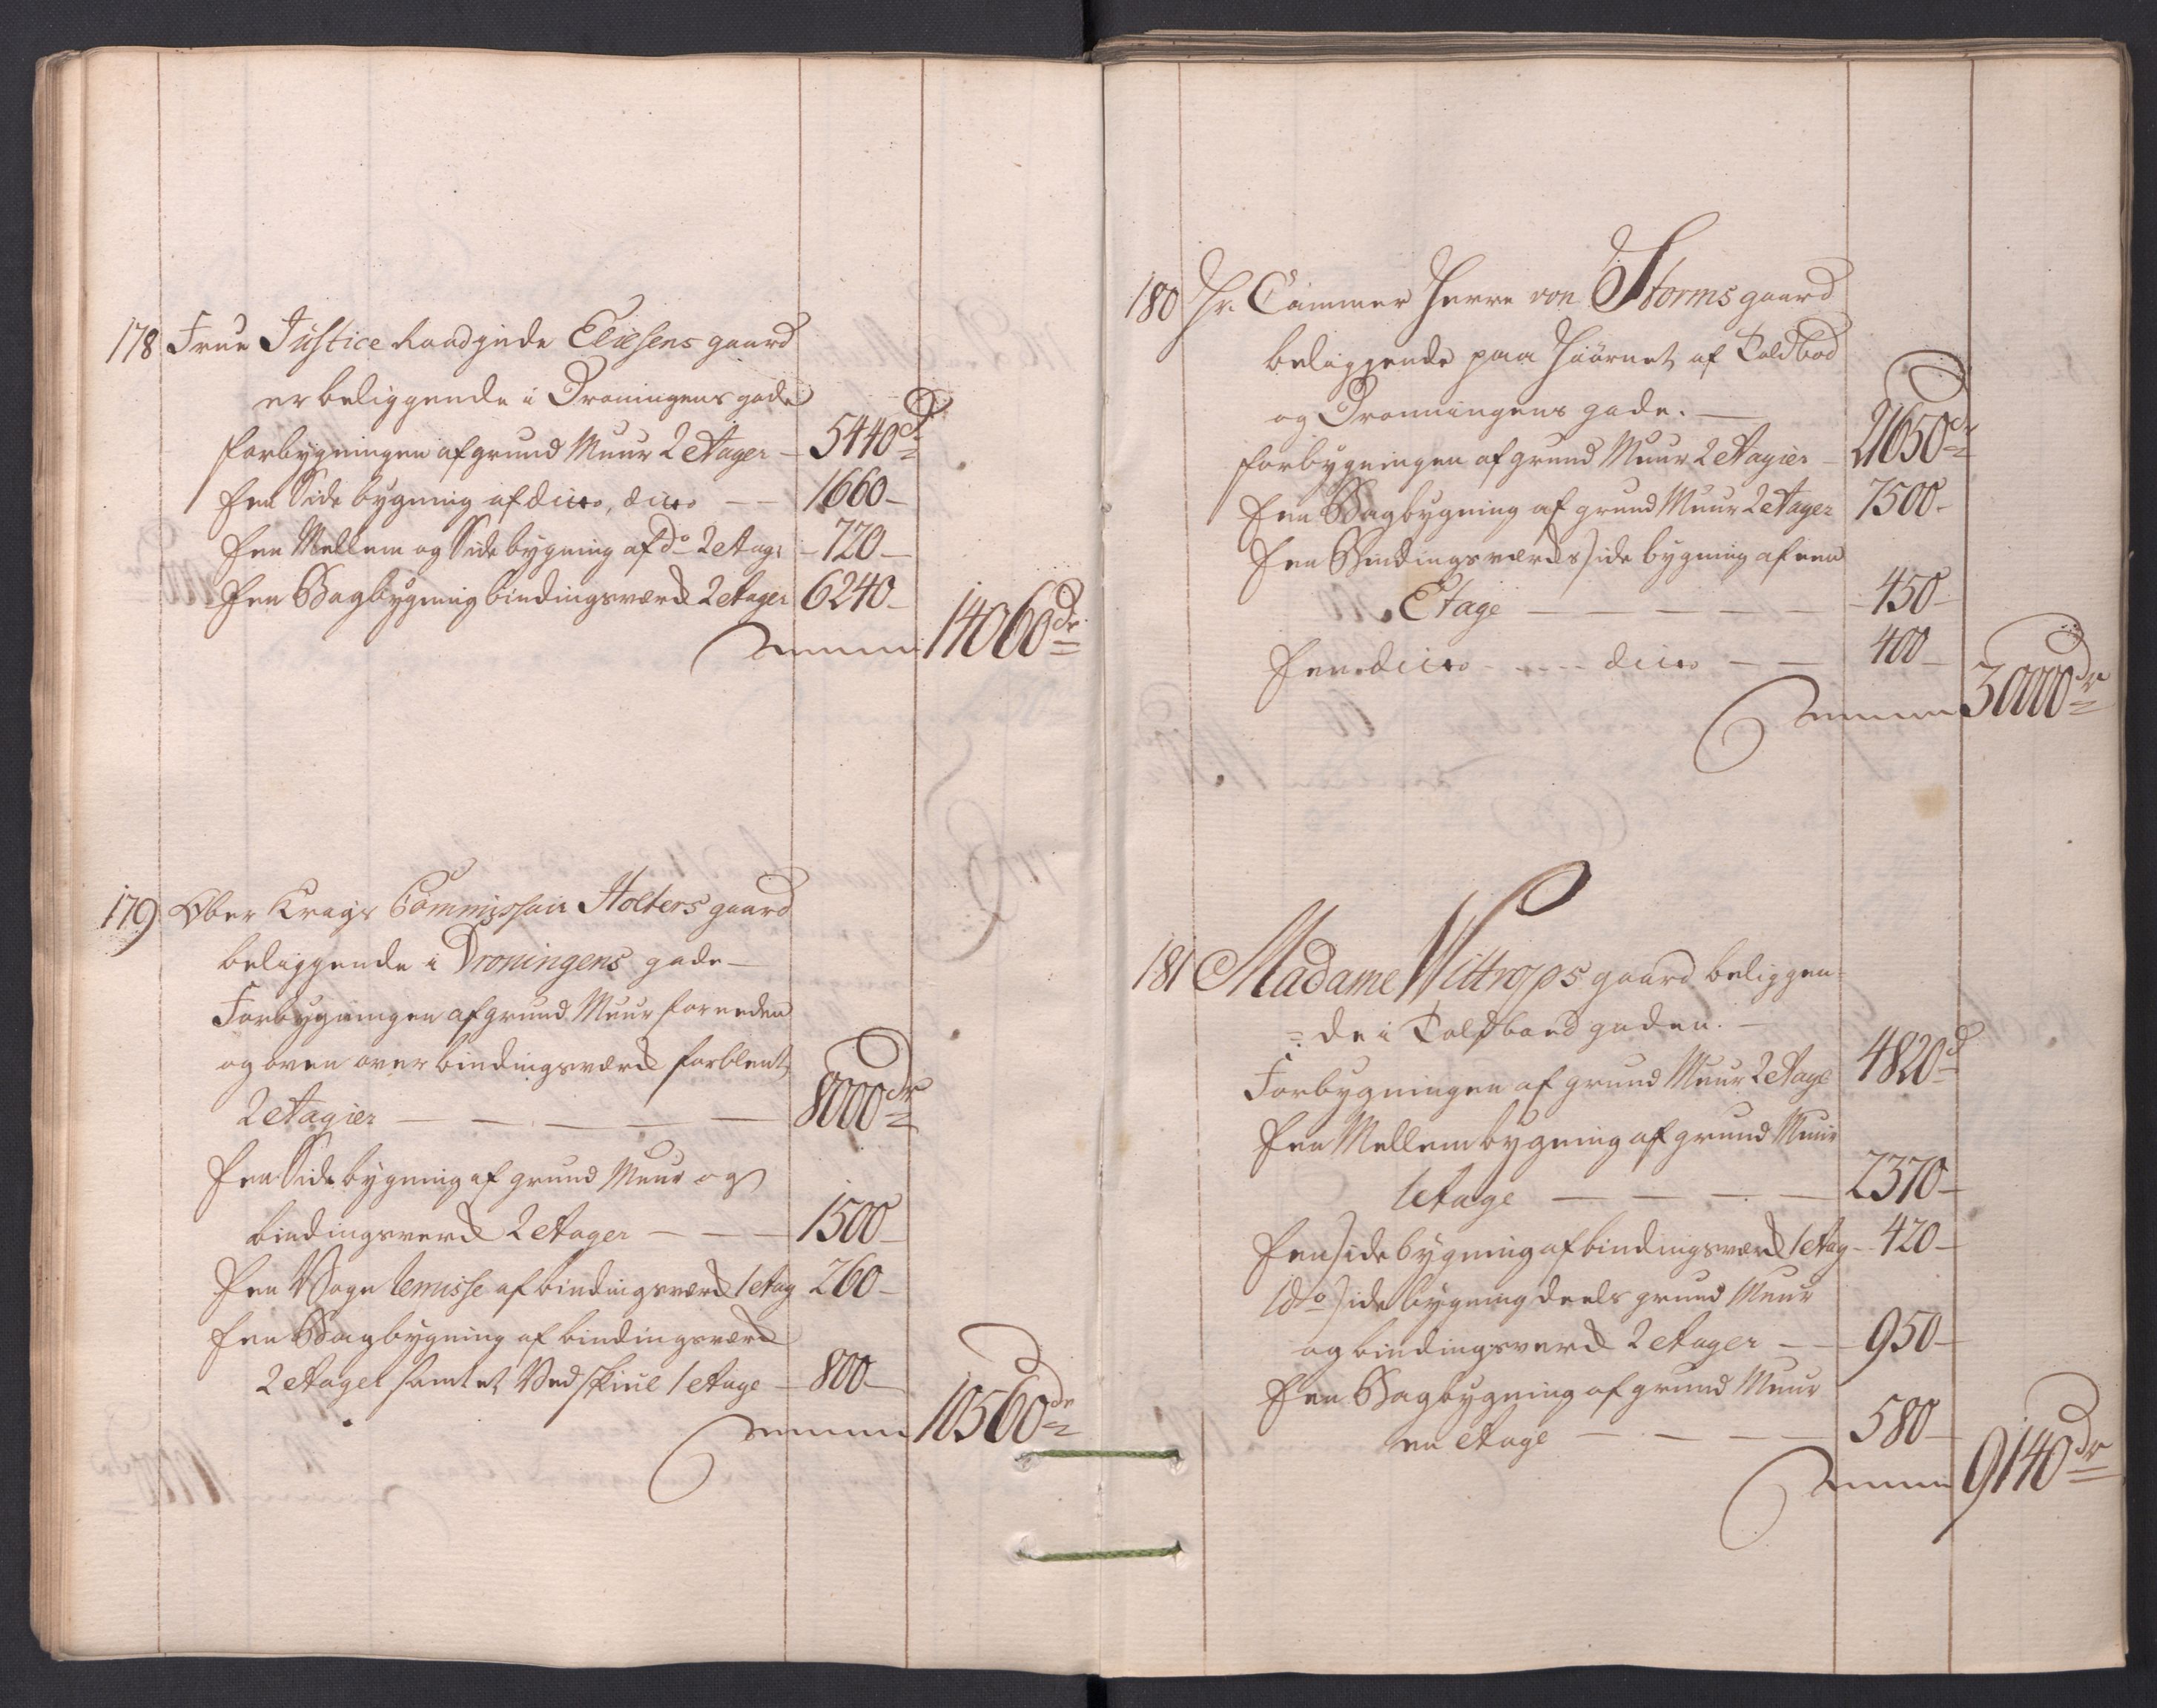 178 Frue Justice Raadinde Eliesens gaard
er beliggende i Droningens gade
forbygningen af grund Muur 2 Etager – 5440 dr
En Side bygning af ditto, ditto – – 1660 –
En Mellem og Side bygning af do 2 Etag: – 720 –
En Bagbygning bindingsværk 2 Etager 6240 –
Summa 14060 dr
179 Ober Krigs Commissair Holters gaard
beliggende i Droningens gade –
Forbygningen af grund Muur for neden
og oven over bindingsværk forblent
2 Etagier – – – – – 8000 dr
En Side bygning af grund Muur og
bindingsverk 2 Etager – – – 1500 –
En Vogn Remisse af bindingsværk 1 Etag 260 –
En Bagbygning af bindingsværk
2 Etager samt et Ved skiul 1 Etage – 800 –
Summa 10560 dr
180 Hr. Cammer Herre von Storms gaard
beliggende paa Hiörnet af Toldbod
og Dronningens gade. –
forbygningen af grund Muur 2 Etagier – 21650 dr
En Bagbygning af grund Muur 2 Etager 7500 –
En Bindingsværks Side bygning af een
Etage – – – – – 450 –
En ditto – – – ditto – – 400 –
Summa 30000 dr
181 Madame Wittrops gaard beliggen=
=de i Toldboed gaden. –
Forbygningen af grund Muur 2 Etage 4820 d
En Mellembygning af grund Muur
1 Etage – – – – 2370 –
En Side bygning af bindingsværk 1 Etag – 420 –
1 do Side bygning deels grund Muur
og bindingsverk 2 Etager – – 950 –
En Bagbygning af grund Muur
en Etage – – – – 580 –
Summa 9140 dr